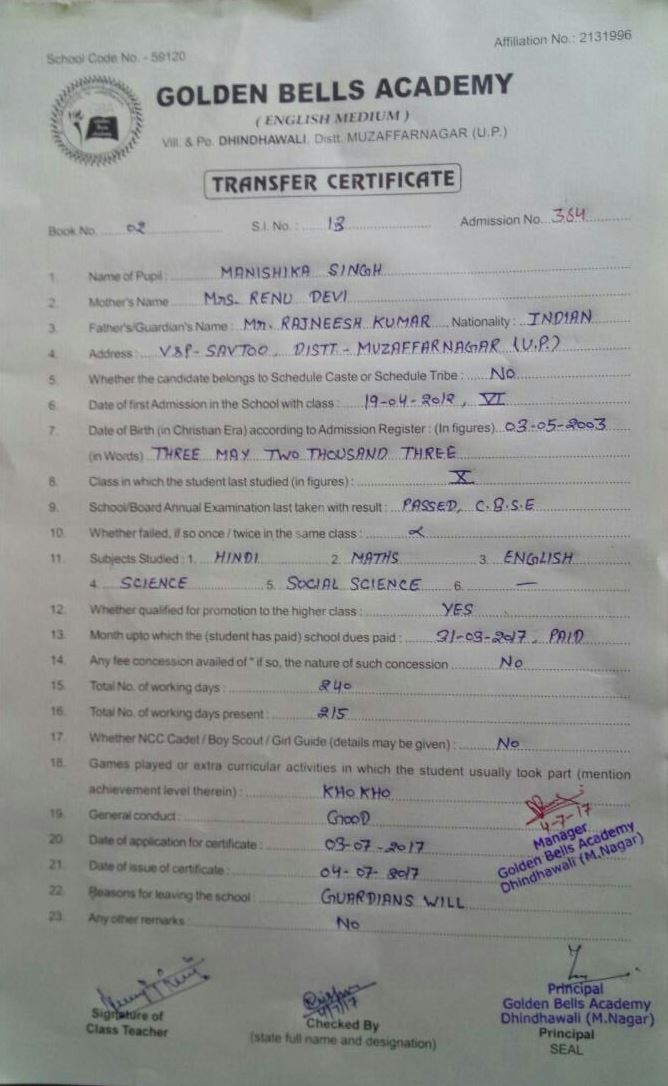 School Code No. - 59120
Affiliation No.: 2131996
GOLDEN BELLS ACADEMY
( ENGLISH MEDIUM )
Vill. & Po. DHINDHAWALI, Distt. MUZAFFARNAGAR (U.P.)
TRANSFER CERTIFICATE
Book No. 02 S.I. No. : 13 Admission No. 364
1. Name of Pupil : MANISHIKA SINGH
2. Mother's Name MRS. RENU DEVI
3. Father's/Guardian's Name : Mr. RAJNEESH KUMAR Nationality : INDIAN
4. Address : V&P- SAVTOO, DISTT - MUZAFFARNAGAR (U.P.)
5. Whether the candidate belongs to Schedule Caste or Schedule Tribe : No
6. Date of first Admission in the School with class : 19-04-2012, VI
7. Date of Birth (in Christian Era) according to Admission Register : (In figures) 03-05-2003
(in Words) THREE MAY TWO THOUSAND THREE
8. Class in which the student last studied (in figures) : X
9. School/Board Annual Examination last taken with result : PASSED, C.B.S.E
10. Whether failed, if so once / twice in the same class :
11. Subjects Studied : 1. HINDI 2. MATHS 3. ENGLISH
4. SCIENCE 5. SOCIAL SCIENCE 6. —
12. Whether qualified for promotion to the higher class : YES
13. Month upto which the (student has paid) school dues paid : 31-03-2017, PAID
14. Any fee concession availed of * if so, the nature of such concession No
15. Total No. of working days : 240
16. Total No. of working days present : 215
17. Whether NCC Cadet / Boy Scout / Girl Guide (details may be given) : No
18. Games played or extra curricular activities in which the student usually took part (mention
achievement level therein) : KHO KHO
19. General conduct : GOOD
20. Date of application for certificate : 03-07-2017
21. Date of issue of certificate : 04-07-2017
22. Reasons for leaving the school : GUARDIANS WILL
23. Any other remarks No
4-7-17
Manager
Golden Bells Academy
Dhindhawali (M.Nagar)
Signature of
Class Teacher
4/7/17
Checked By
(state full name and designation)
Principal
Golden Bells Academy
Dhindhawali (M.Nagar)
Principal
SEAL